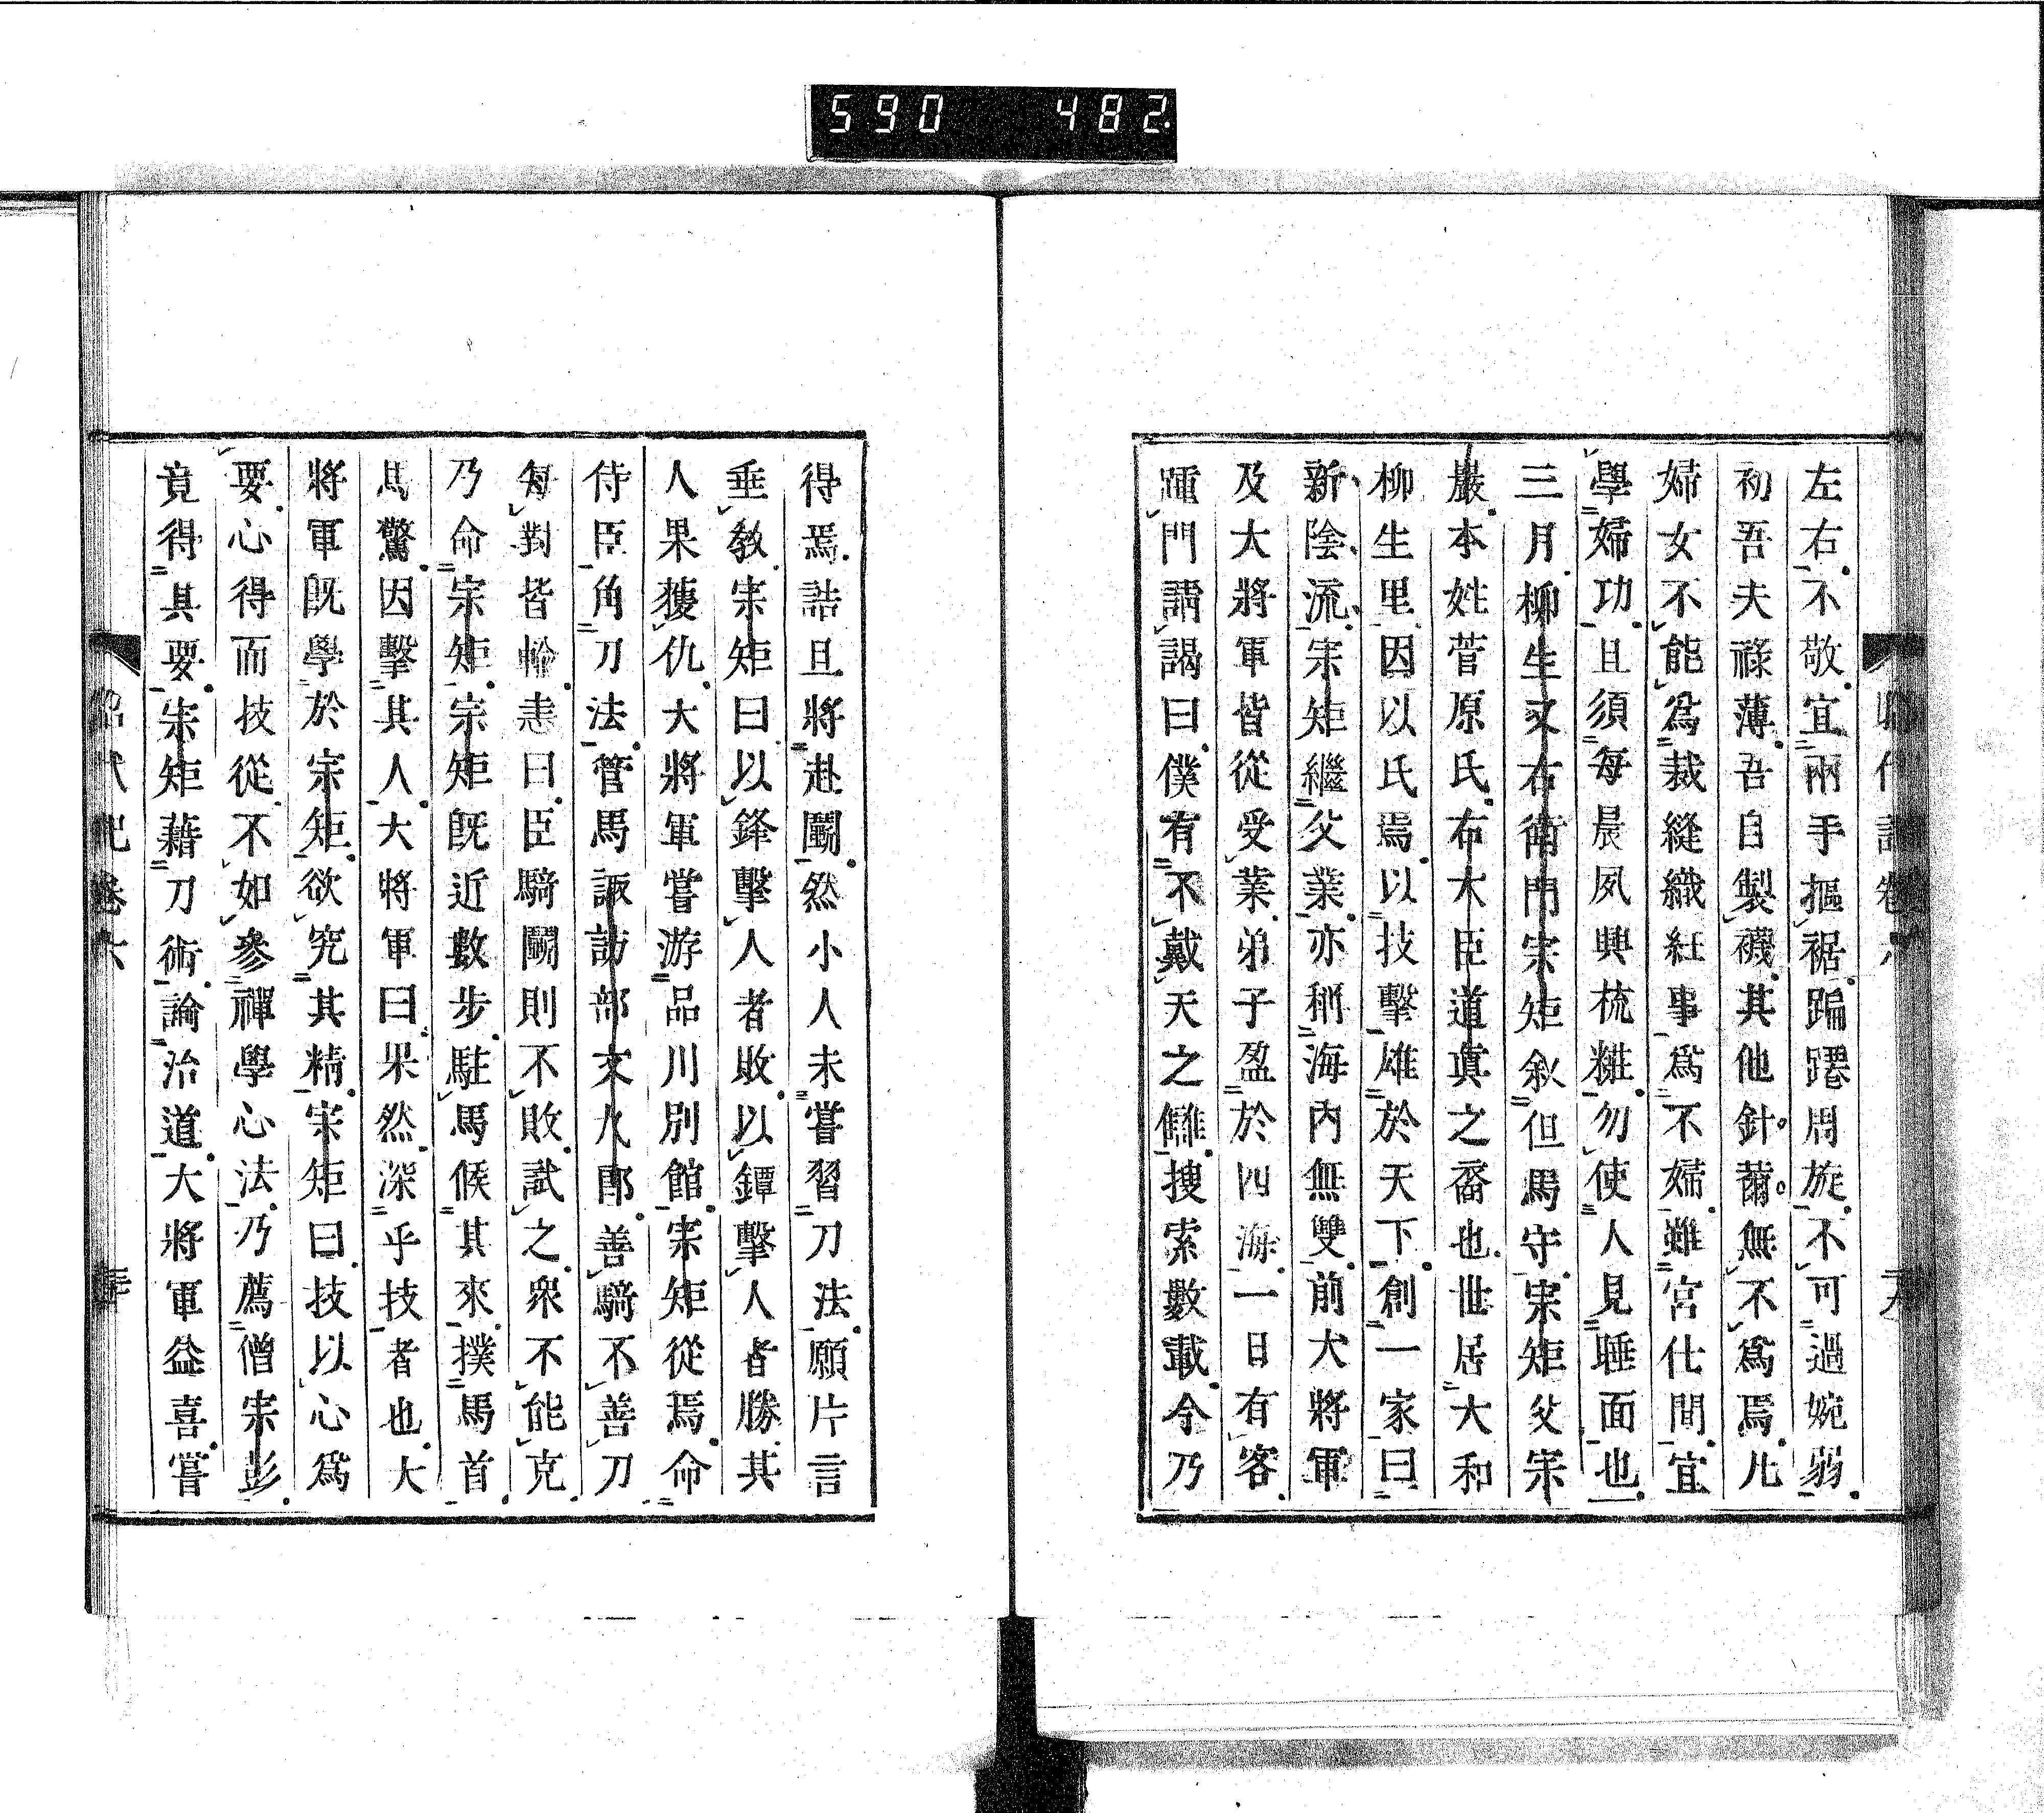 590 482
左右不敬宜兩手摳裾蹁躚周旋不可過婉弱
初吾夫祿薄吾自製襪其他針黹無不爲焉凡
婦女不能爲裁縫織紝事爲不婦雖宮仕間宜
學婦功且須每晨夙興梳糚勿使人見睡面也
三月柳生又右衛門宗矩叙但馬守宗矩父宗
嚴本姓菅原氏布大臣道真之裔也世居大和
柳生里因以氏焉以技擊雄於天下創一家曰
新陰流宗矩繼父業亦稱海內無雙前大將軍
及大將軍皆從受業弟子盈於四海一日有客
踵門謂謁曰僕有不戴天之讎搜索數載今乃
得焉詰旦將赴鬭然小人未嘗習刀法願片言
垂敎宗矩曰以鋒擊人者敗以鐔擊人者勝其
人果獲仇大將軍嘗游品川別館宗矩從焉命
侍臣角刀法管馬諏訪部文九郎善騎不善刀
每對皆輸恚曰臣騎鬭則不敗試之衆不能克
乃命宗矩宗矩旣近數步駐馬候其來撲馬首
馬驚因擊其人大將軍曰果然深乎技者也大
將軍旣學於宗矩欲究其精宗矩曰技以心爲
要心得而技從不如參禪學心法乃薦僧宗彭
竟得其要宗矩藉刀術論治道大將軍益喜嘗
卷六